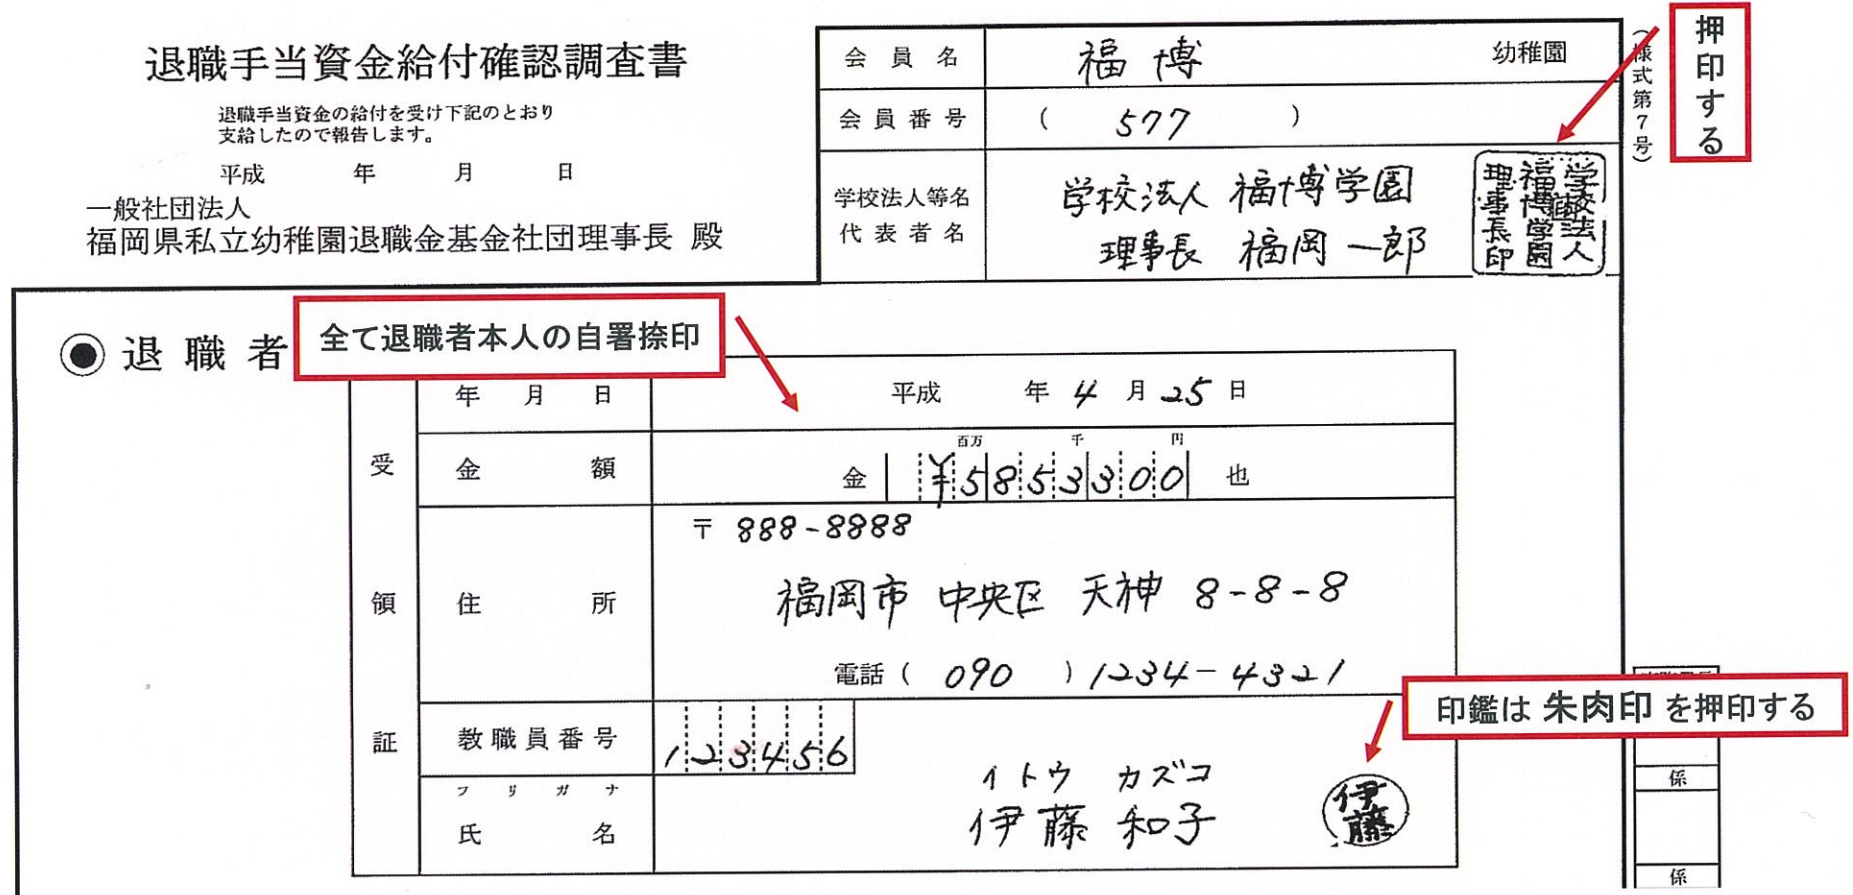 退職手当資金給付確認調査書
退職手当資金の給付を受け下記のとおり
支給したので報告します。
平成 年 月 日
一般社団法人
福岡県私立幼稚園退職金基金社団理事長 殿
会員名 福博 幼稚園
会員番号 ( 577 )
学校法人等名
代表者名
学校法人 福博学園
理事長 福岡一郎
学校法人
福博学園
理事長印
(様式第7号)
押印する
退職者
全て退職者本人の自署捺印
受領証
年月日 平成 年 4 月 25 日
百万 千 円
金額 金 ¥5853300 也
住所
〒 888-8888
福岡市 中央区 天神 8-8-8
電話 ( 090 ) 1234-4321
印鑑は 朱肉印 を押印する
教職員番号 123456
フリガナ イトウ カズコ
氏名 伊藤 和子
伊藤
係
係